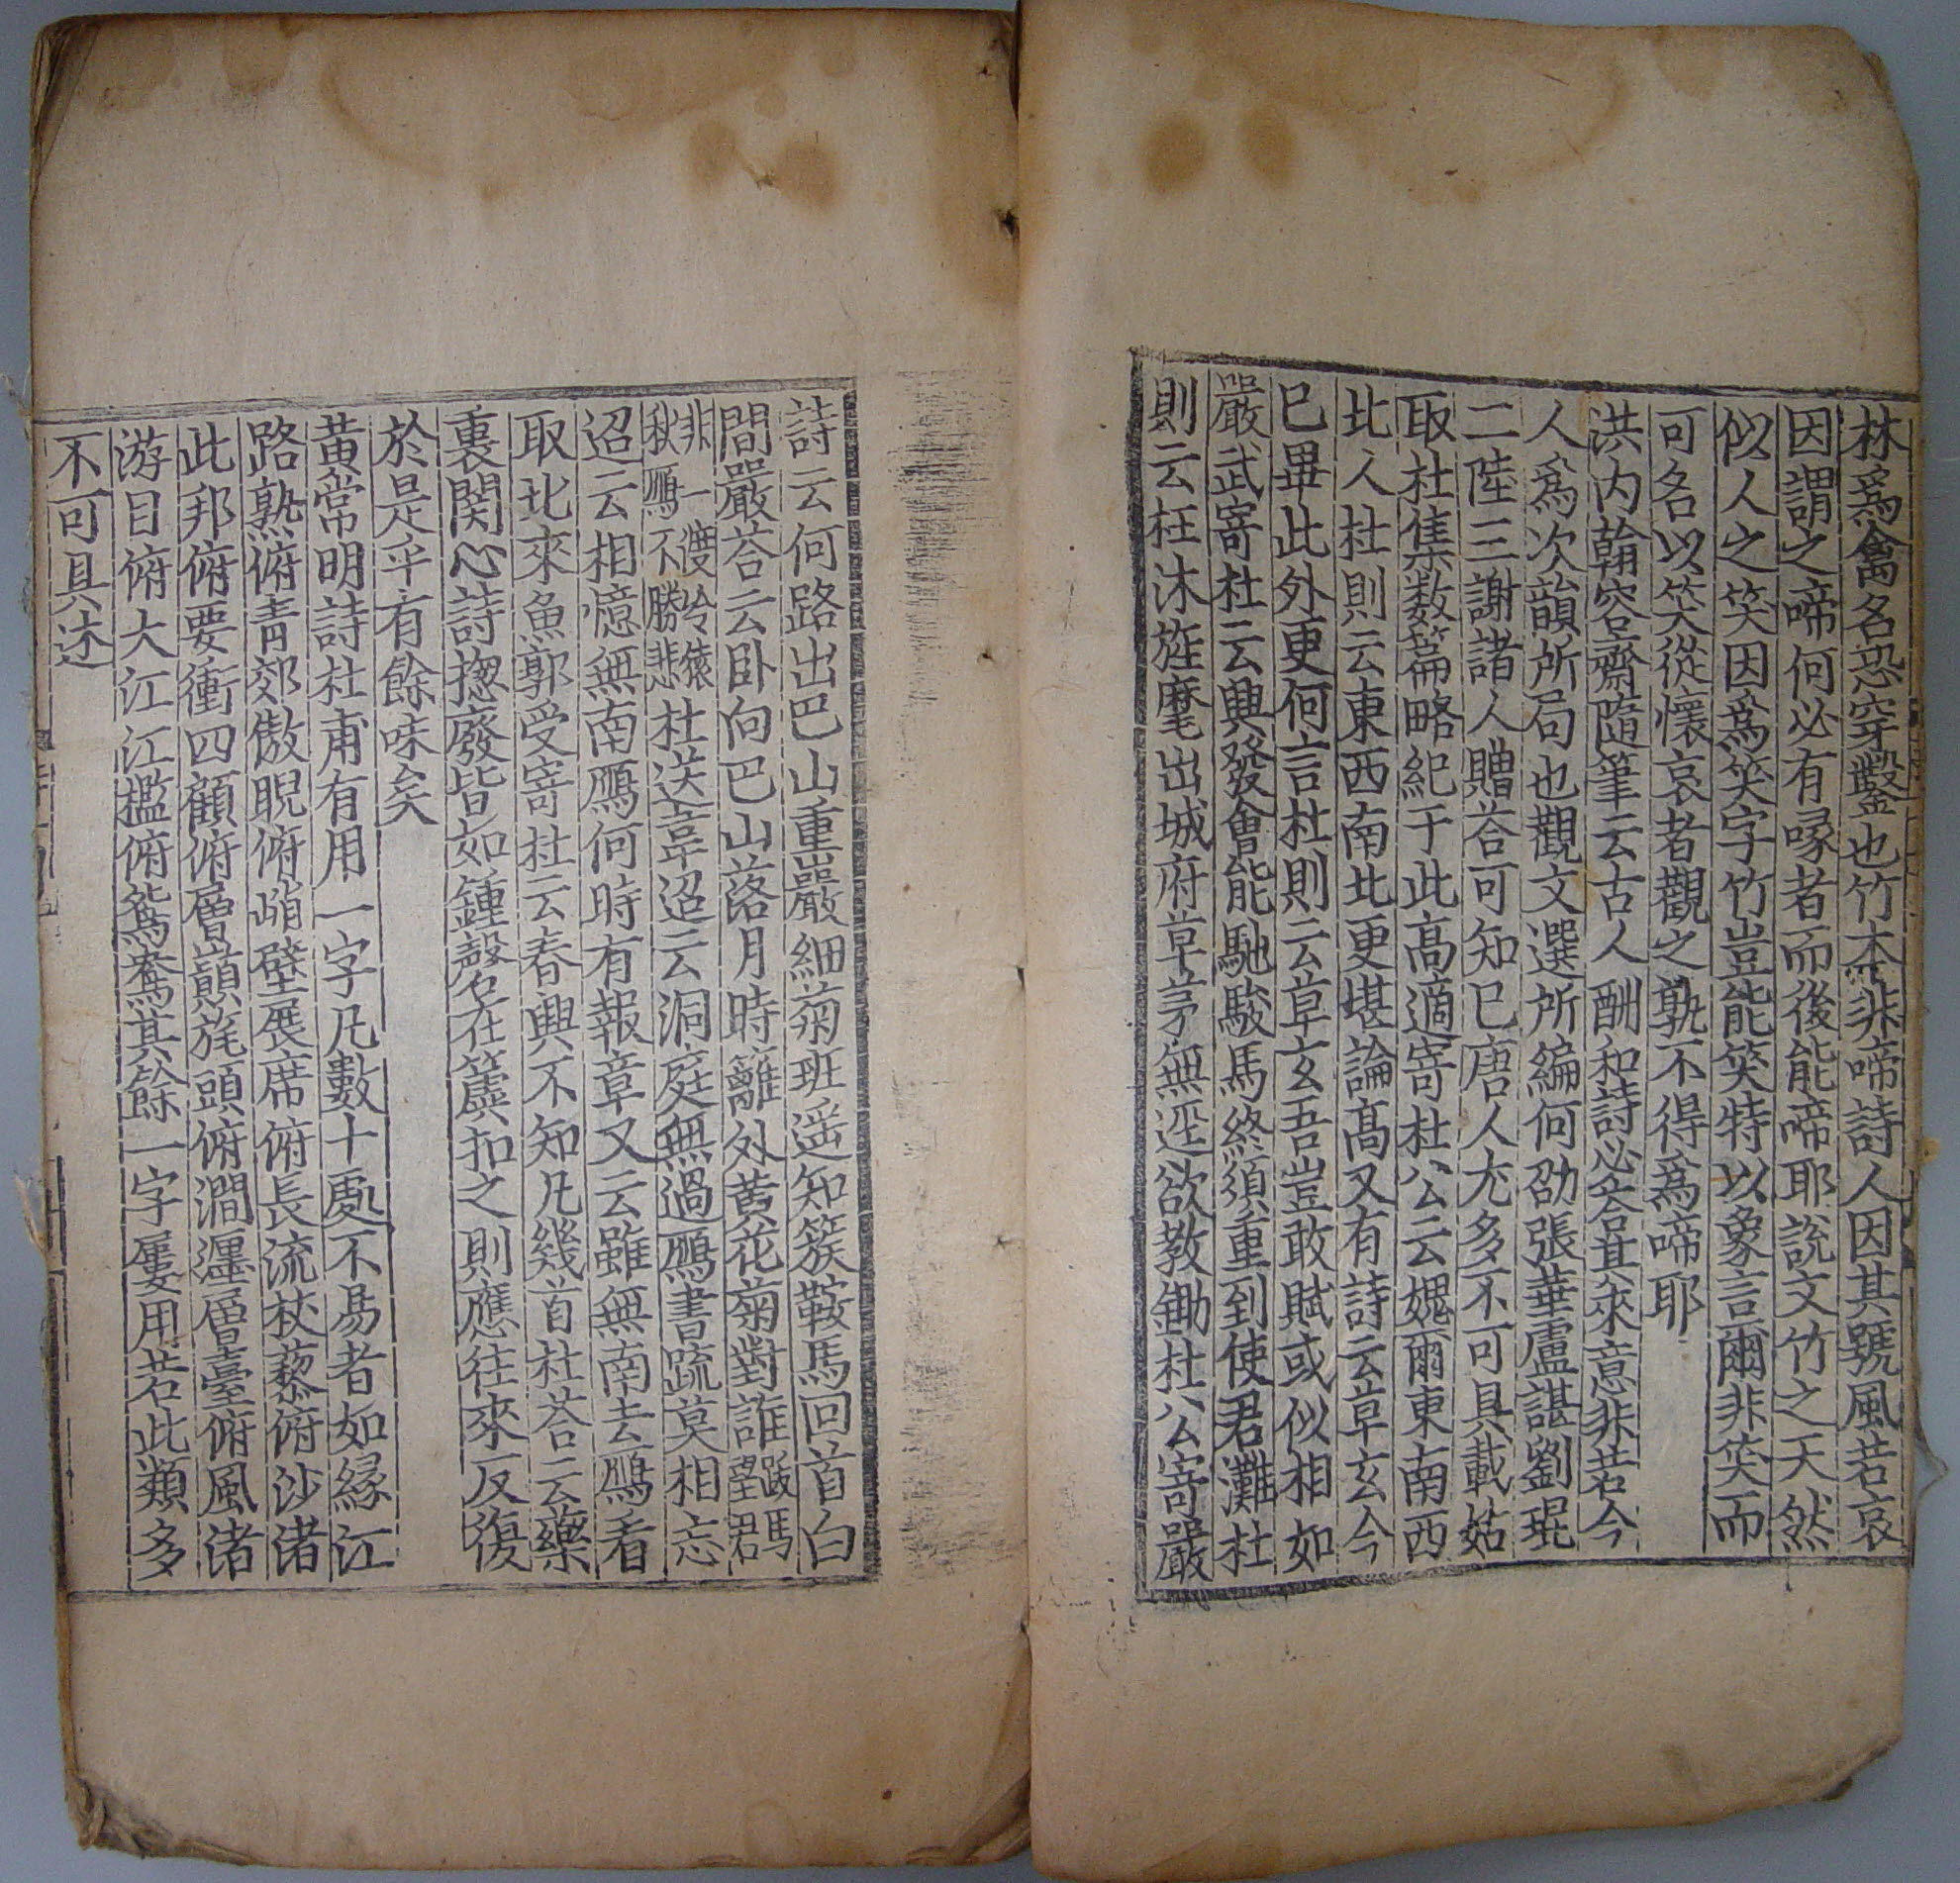 林爲禽名恐穿鑿也竹木非啼詩人因其號風若哀
因謂之啼何必有喙者而後能啼耶說文竹之夭然
似人之笑因爲笑字竹豈能笑特以象言爾非笑而
可名以笑從懷哀者觀之孰不得爲啼耶
洪内翰容齋隨筆云古人酬和詩必荅其來意非若今
人爲次韻所局也觀文選所編何劭張華盧諶劉琨
二陸三謝諸人贈荅可知已唐人尤多不可具載姑
取杜集数篇略紀于此高適寄杜公云媿爾東南西
北人杜則云東西南北更堪論高又有詩云草玄今
已畢此外更何言杜則云草玄吾豈敢賦或似相如
嚴武寄杜云興發會能馳駿馬終須重到使君灘杜
則云枉沐旌麾出城府草茅無逕欲教鋤杜公寄嚴
詩云何路出巴山重巖細菊班遥知簇鞍馬回首白
間嚴荅云卧向巴山落月時籬外黄花菊對誰跂馬望君
非一度冷猿秋鴈不勝悲杜送韋迢云洞庭無過鴈書疏莫相忘
迢云相憶無南鴈何時有報章又云雖無南去鴈看
取北來魚郭受寄杜云春興不知凡幾首杜荅云藥
裹関心詩揔廢皆如鍾磬在簴扣之則應往來反復
於是乎有餘味矣
黄常明詩杜甫有用一字凡數十處不易者如緣江
路熟俯青郊傲睨俯峭壁展席俯長流杖藜俯沙渚
此邦俯要衝四顧俯層巔旄頭俯澗瀍層臺俯風渚
游目俯大江江檻俯鴛鴦其餘一字屢用若此類多
不可具述